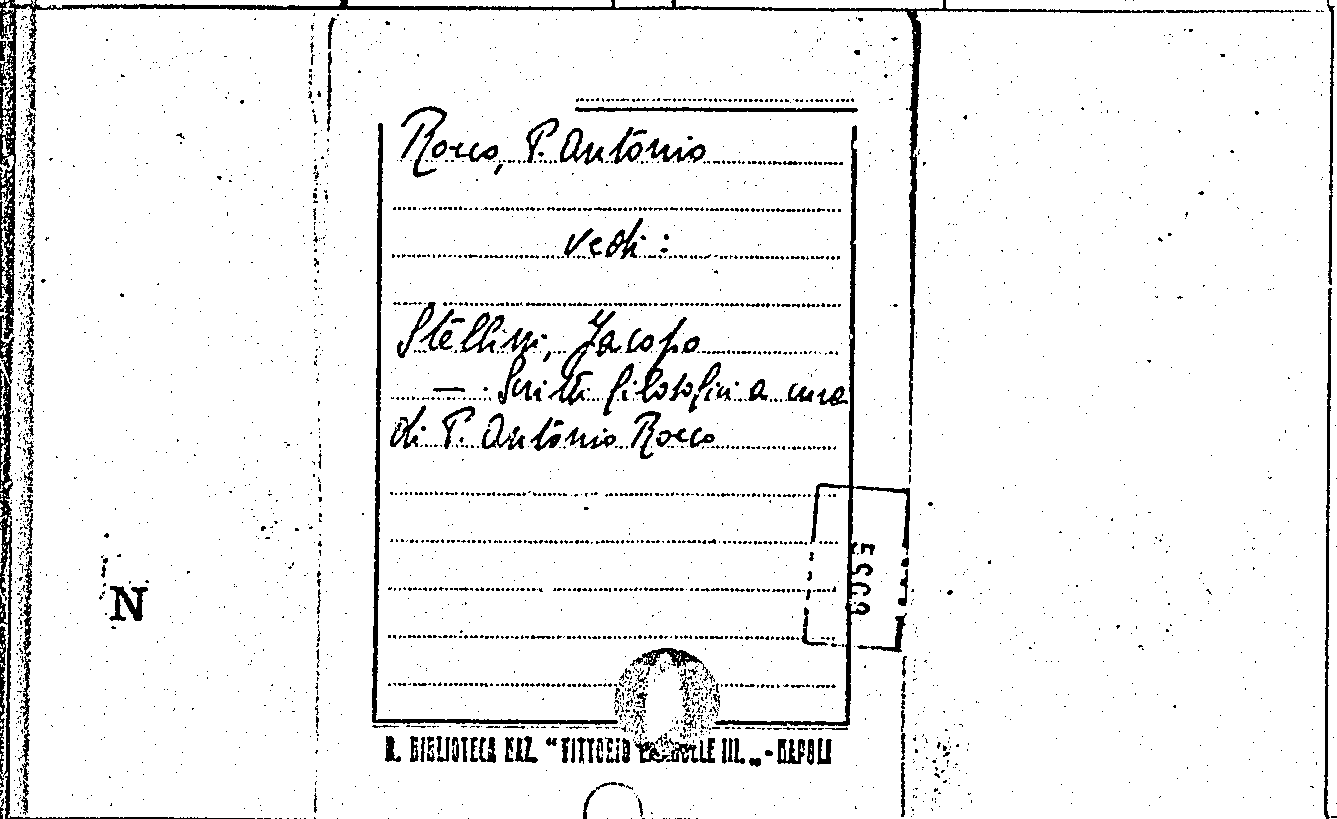 Rocco, P. Antonio
vedi:
Stellini, Jacopo
— : Scritti filosofici a cura
di P. Antonio Rocco
N
R. BIBLIOTECA NAZ. “VITTORIO EMANUELE III.„ - NAPOLI